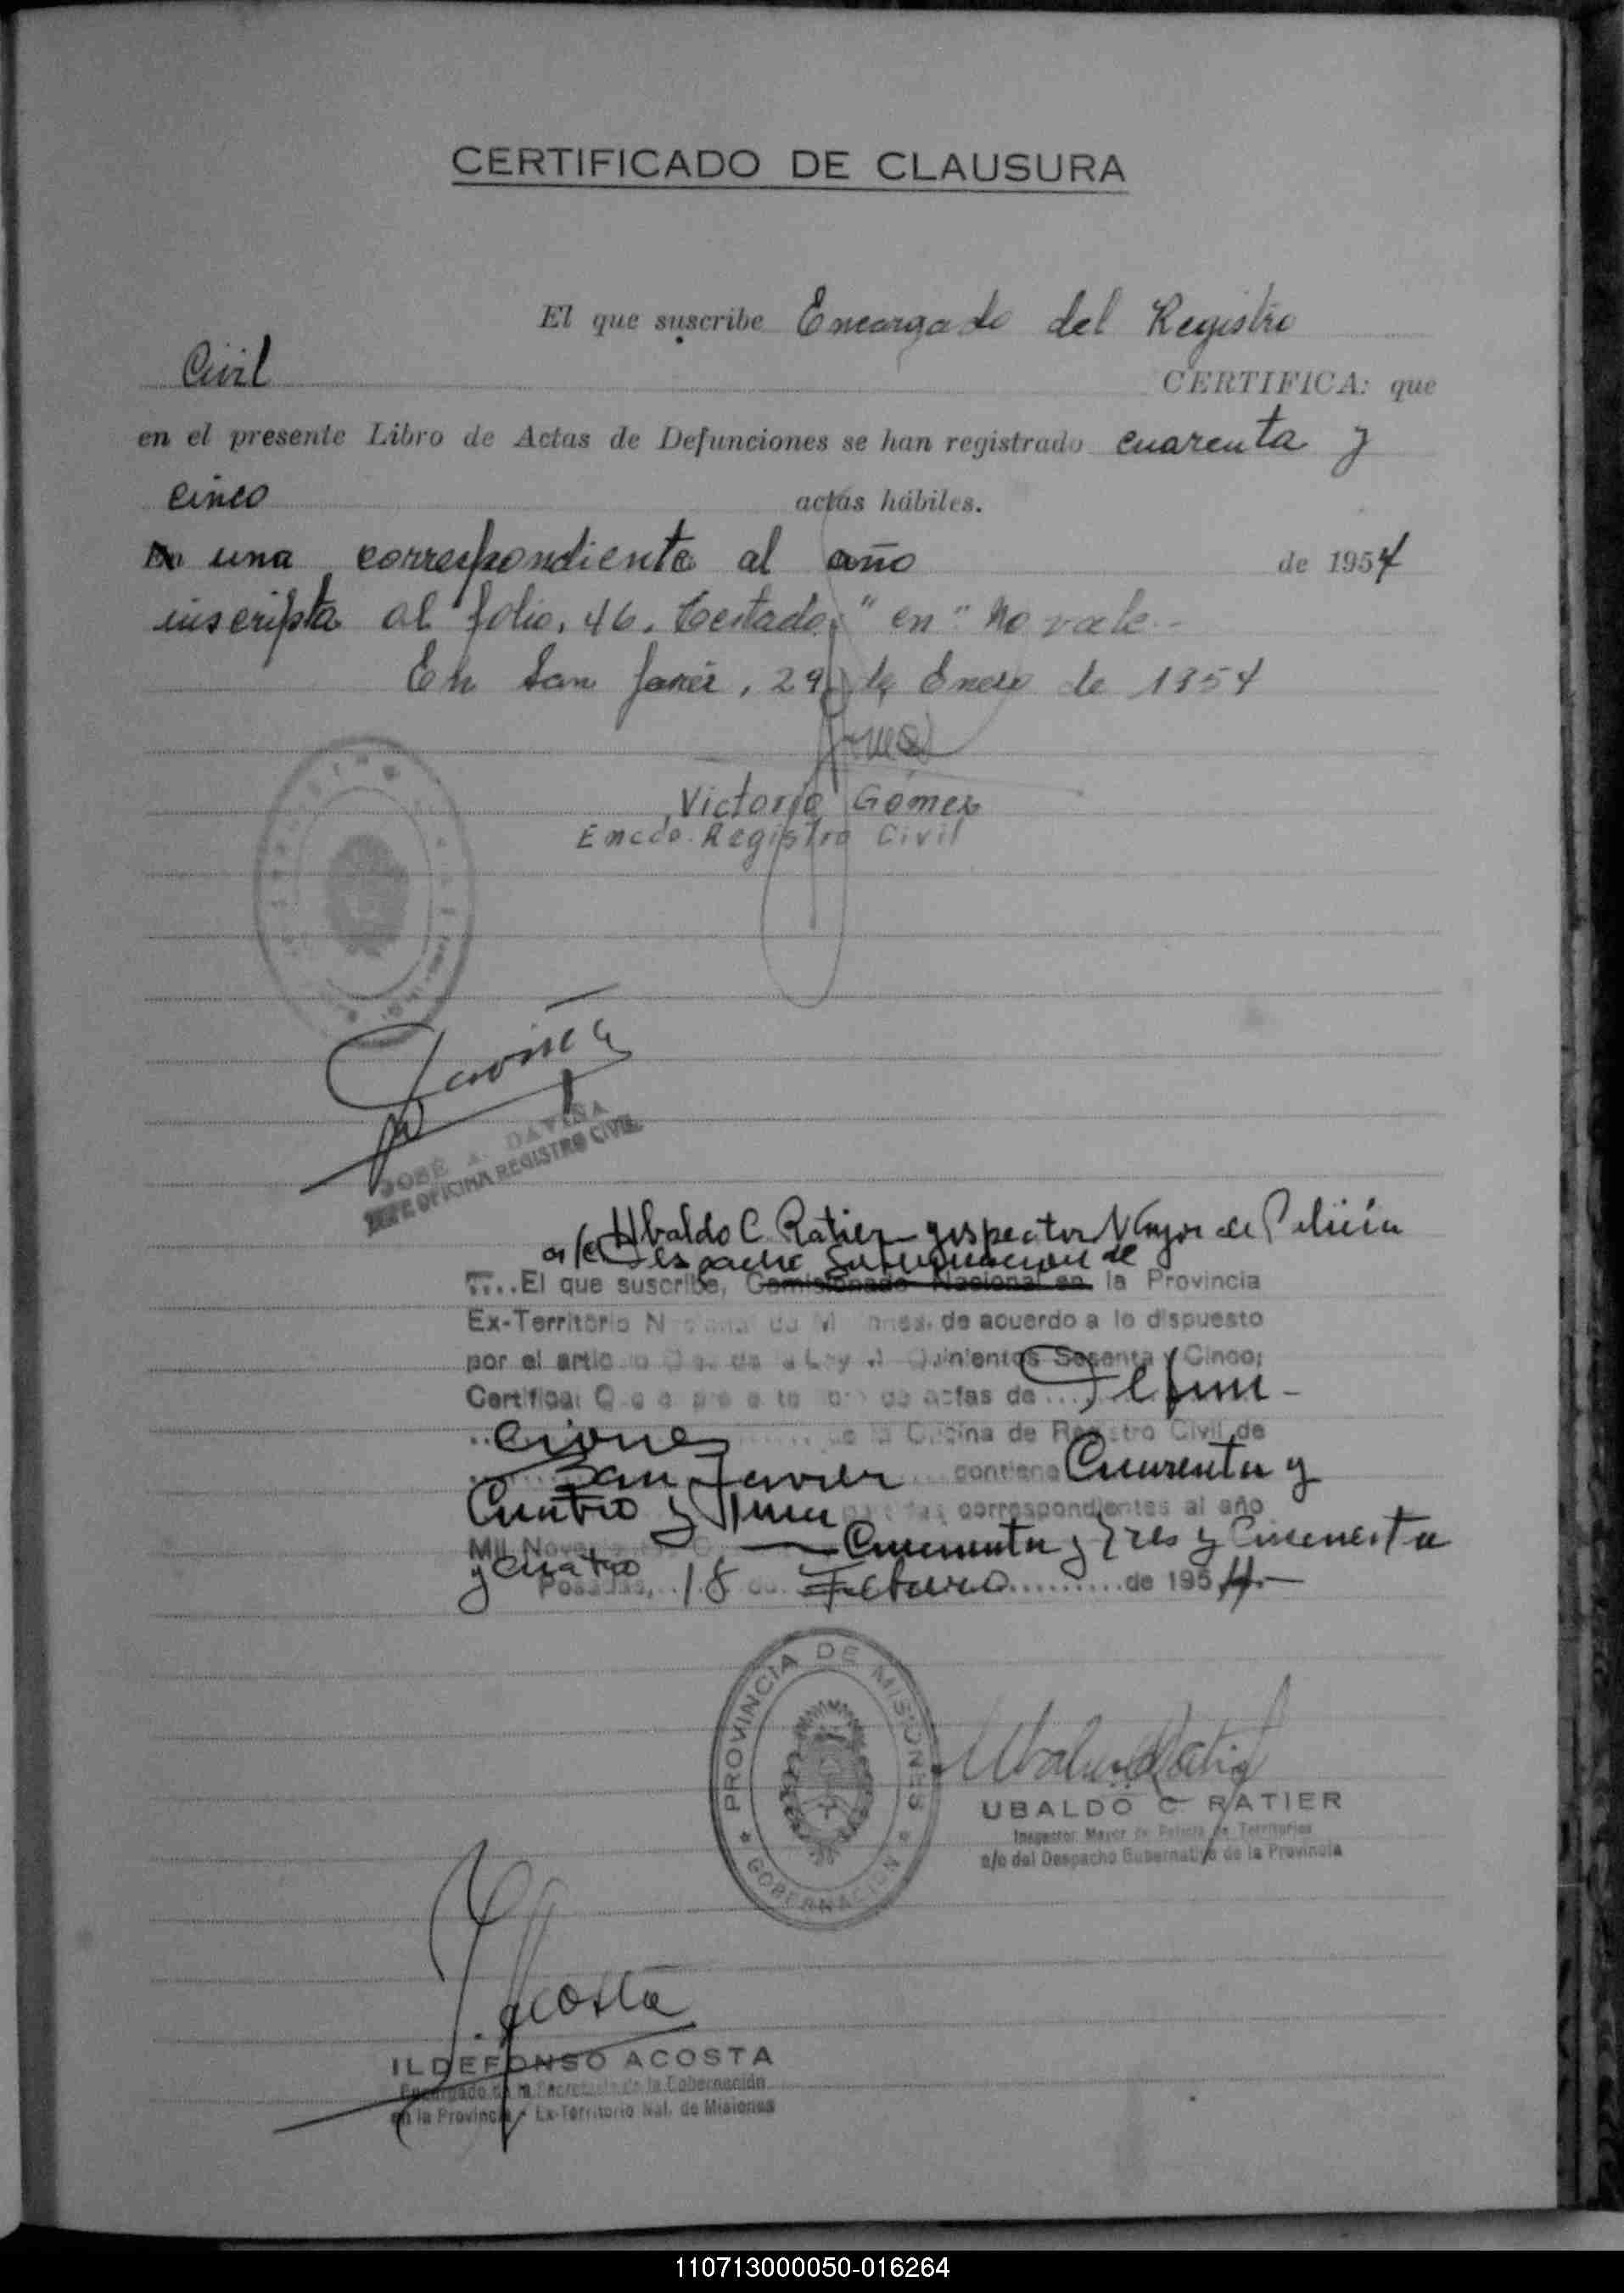 CERTIFICADO DE CLAUSURA
El que suscribe Encargado del Registro
Civil CERTIFICA: que
en el presente Libro de Actas de Defunciones se han registrado cuarenta y
cinco actas hábiles.
una correspondiente al año de 1954
inscripta al folio, 46. Testado: "en" No vale.-
En San Javier, 29 de Enero de 1954
Victorio Gómez
Encdo. Registro Civil
JOSE A. DAVIÑA
JEFE OFICINA REGISTRO CIVIL
Ubaldo C. Ratier Inspector Mayor de Policía
a/c Despacho Gobernacion de
....El que suscribe, Comisionado Nacional en la Provincia
Ex-Territorio Nacional de Misiones, de acuerdo a lo dispuesto
por el artículo de la Ley Quinientos Sesenta y Cinco;
Certifica: Que el presente libro de actas de Defun-
ciones de la Oficina de Registro Civil de
San Javier contiene Cuarenta y
Cuatro y Una partidas correspondientes al año
Mil Novecientos Cincuenta y Tres y Cincuenta
y cuatro
Posadas, 18 de Febrero de 1954.-
PROVINCIA DE MISIONES
GOBERNACION
UBALDO C. RATIER
Inspector Mayor de Policía de Territorios
a/c del Despacho Gubernativo de la Provincia
Acosta
ILDEFONSO ACOSTA
Encargado de la Secretaría de la Gobernación
en la Provincia - Ex-Territorio Nal. de Misiones
110713000050-016264